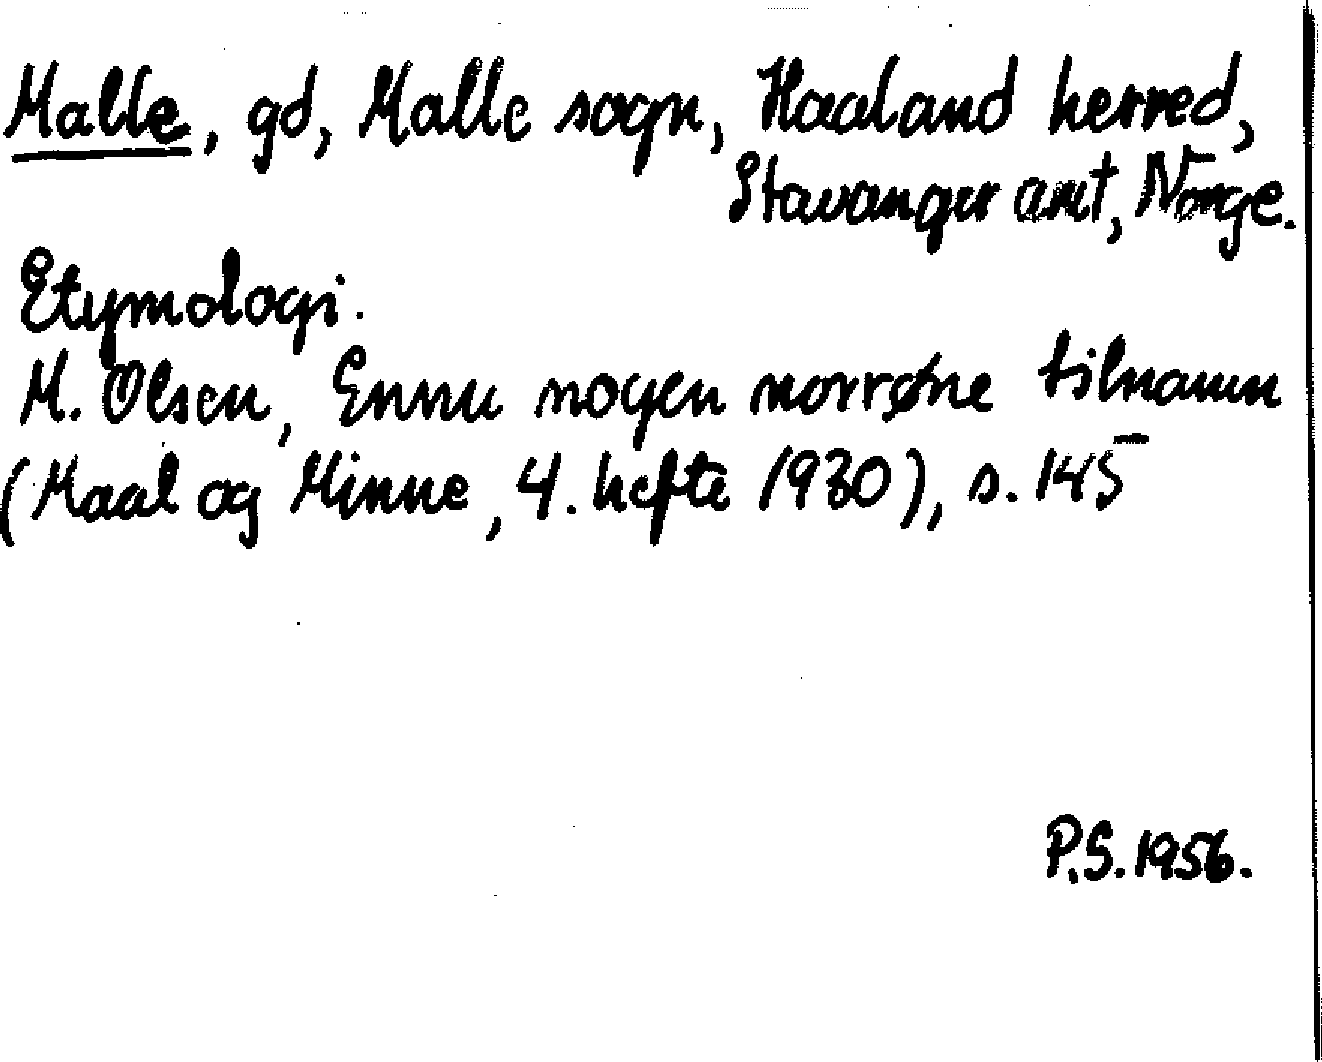 Malle, gd, Malle sogn, Haaland herred,
Stavanger amt, Norge.
Etymologi.
M. Olsen, Ennu nogen norrøne tilnamn
(Maal og Minne, 4. hefte 1930), s. 145
P.S. 1956.